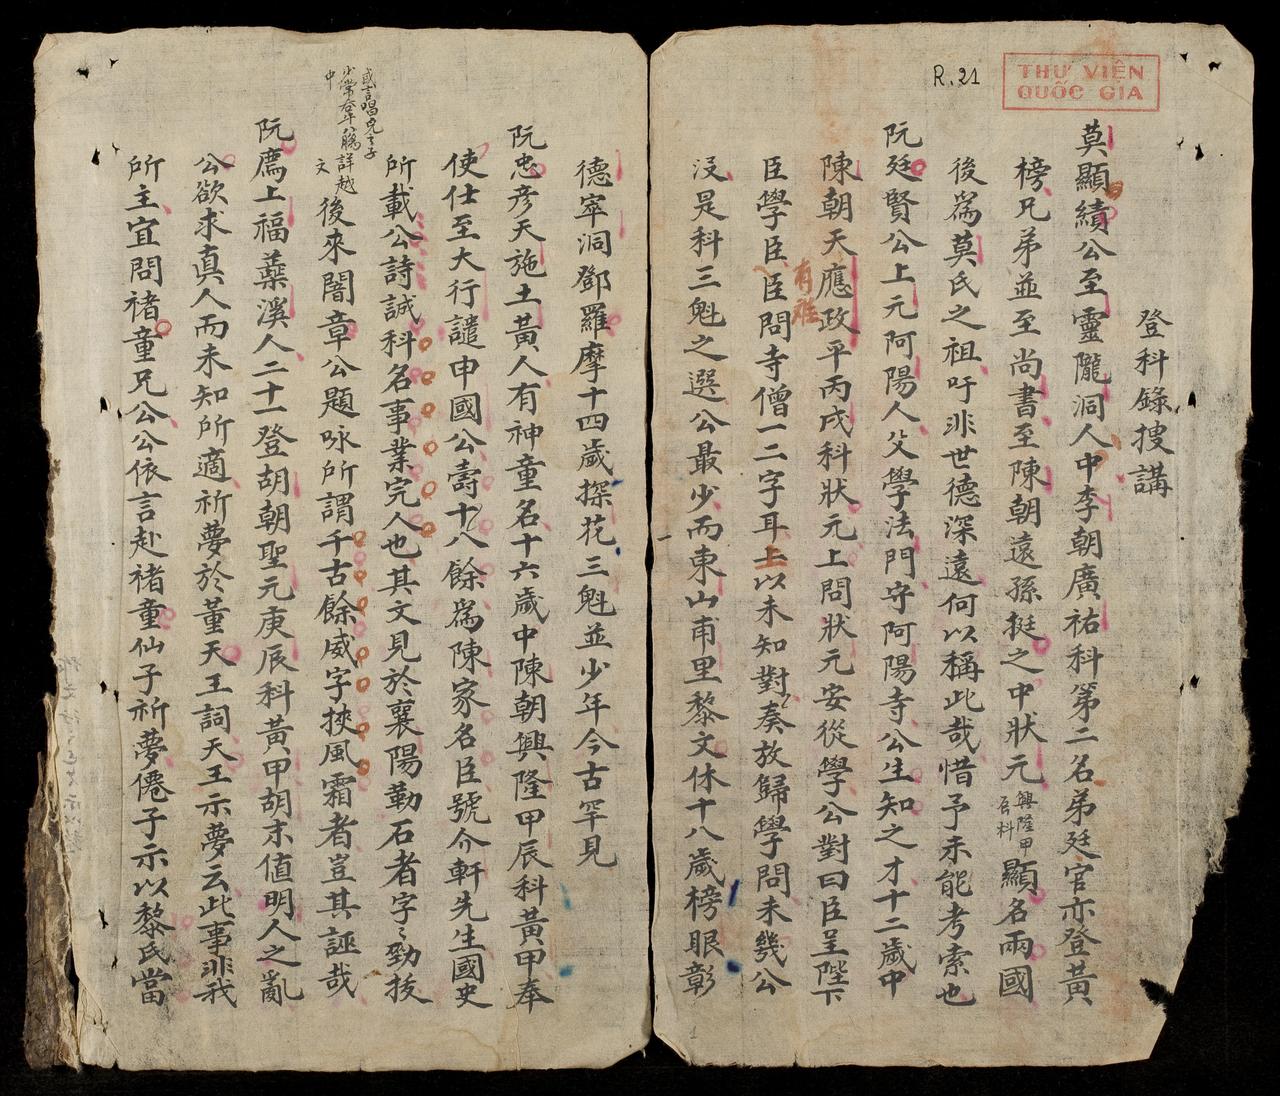 R.21
THƯ VIỆN
QUỐC GIA
登科錄搜講
莫顯績公至靈隴洞人中李朝廣祐科第二名弟廷官亦登黃
榜兄弟並至尚書至陳朝遠孫挺之中狀元興隆甲辰科顯名兩國
後爲莫氏之祖吁非世德深遠何以稱此哉惜予未能考索也
阮廷賢公上元阿陽人父學法門守阿陽寺公生知之才十二歲中
陳朝天應政平丙戌科狀元上問狀元安從學公對曰臣呈陛下
有雅
臣學臣臣問寺僧一二字耳上以未知對奏放歸學問未幾公
沒是科三魁之選公最少而東山甫里黎文休十八歲榜眼彰
德寧洞鄧羅摩十四歲探花三魁並少年今古罕見
阮忠彥天施土黃人有神童名十六歲中陳朝興隆甲辰科黃甲奉
使仕至大行譴申國公壽十八餘爲陳家名臣號介軒先生國史
所載公詩誠科名事業完人也其文見於襄陽勒石者字〻勁技
詳越文後來闇章公題咏所謂千古餘威字挾風霜者豈其誣哉
阮廌上福蘂溪人二十一登胡朝聖元庚辰科黃甲胡末值明人之亂
公欲求真人而未知所適祈夢於董天王詞天王示夢云此事非我
所主宜問褚童兄公公依言赴褚童仙子祈夢僊子示以黎氏當